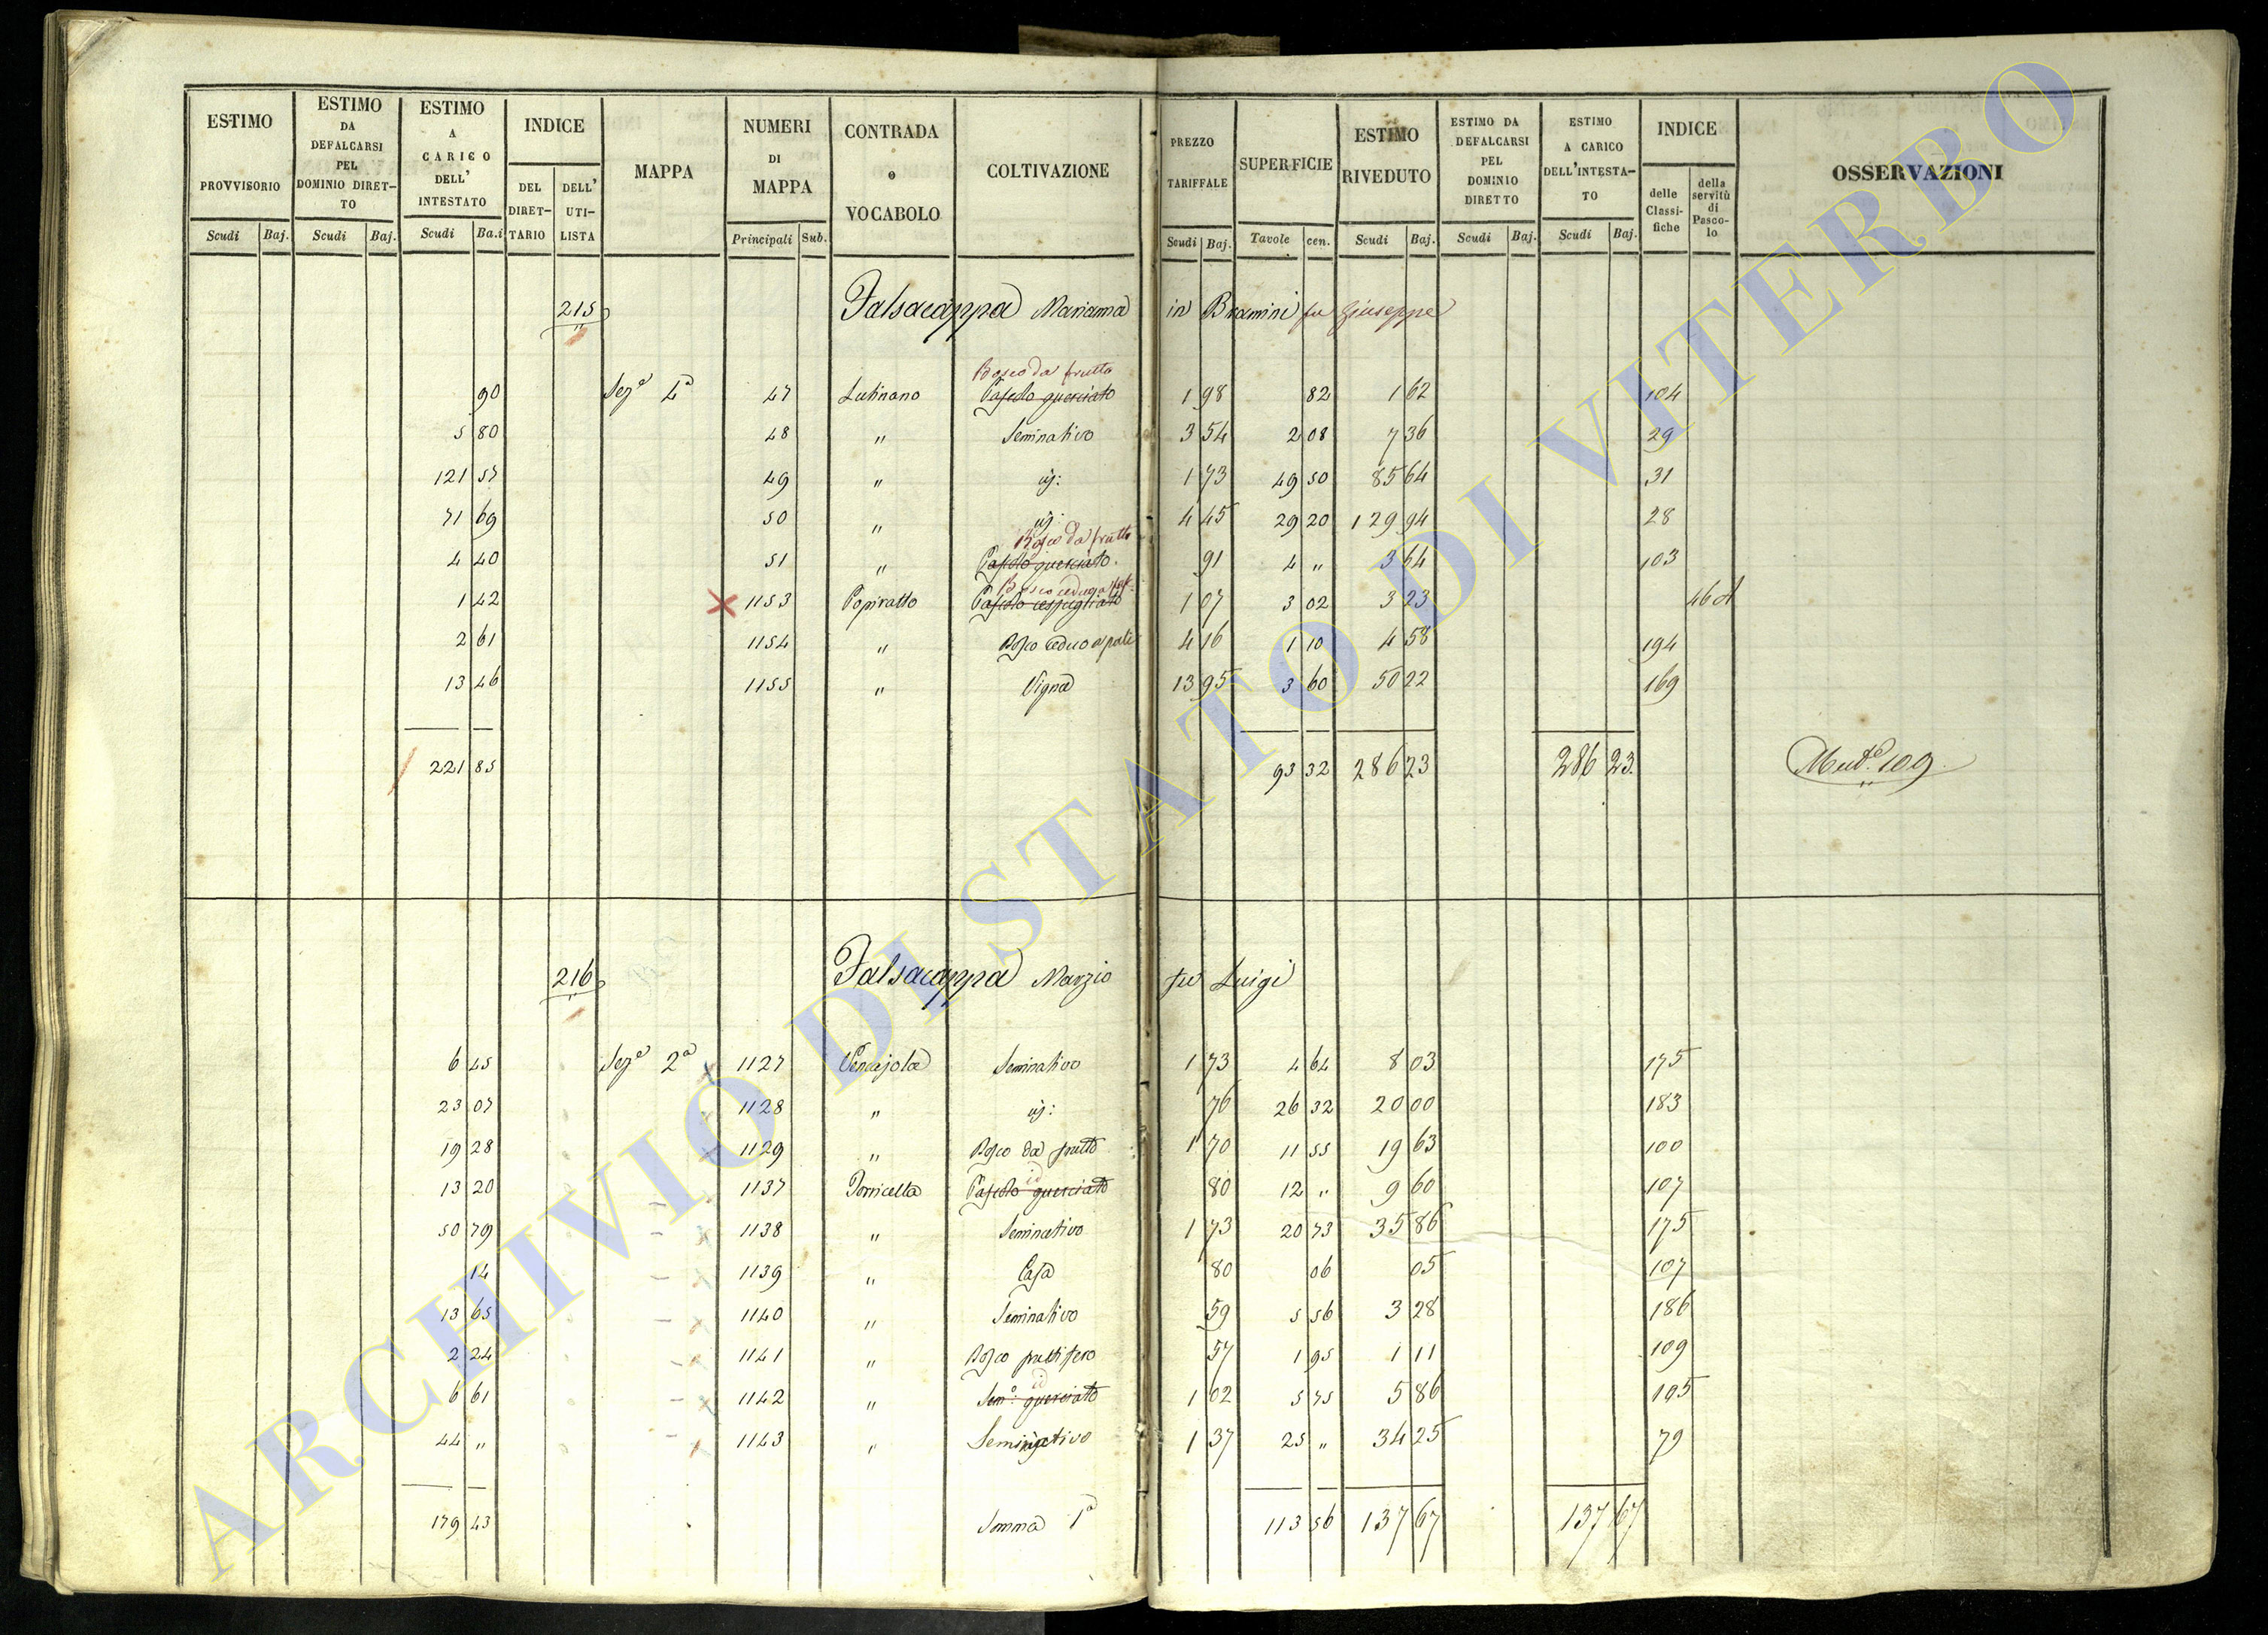 ESTIMO PROVVISORIO | ESTIMO DA DEFALCARSI PEL DOMINIO DIRETTO | ESTIMO A CARICO DELL' INTESTATO | INDICE | MAPPA | NUMERI DI MAPPA | CONTRADA o VOCABOLO | COLTIVAZIONE | PREZZO TARIFFALE | SUPERFICIE | ESTIMO RIVEDUTO | ESTIMO DA DEFALCARSI PEL DOMINIO DIRETTO | ESTIMO A CARICO DELL'INTESTATO | INDICE | OSSERVAZIONI
DEL DIRETTARIO | DELL' UTILISTA | delle Classifiche | della servitù di Pascolo
Scudi | Baj. | Scudi | Baj. | Scudi | Ba.i | Principali | Sub. | Scudi | Baj. | Tavole | cen. | Scudi | Baj. | Scudi | Baj. | Scudi | Baj.
215 Falsacappa Marianna in Bramini fu Giuseppe
Bosco da frutto
90 Sez.e 4a 47 Lutinano Pascolo querciato 1 98 82 1 62 104
5 80 48 " Seminativo 3 54 2 08 7 36 29
121 57 49 " id: 1 73 49 50 85 64 31
71 69 50 " id: 4 45 29 20 129 94 28
Bosco da frutto
4 40 51 " Pascolo querciato 91 4 " 3 64 103
Bosco ceduo
1 42 1153 Popiratto Pascolo cespugliato 1 07 3 02 3 23 46
2 61 1154 " Bosco ceduo a pali 4 16 1 10 4 58 194
13 46 1155 " Vigna 13 95 3 60 50 22 169
221 85 93 32 286 23 286 23. Mut.e 109.
216 Falsacappa Marzio fu Luigi
6 45 Sez.e 2a 1127 Vencajola Seminativo 1 73 4 64 8 03 175
23 07 1128 " id: 76 26 32 20 00 183
19 28 1129 " Bosco da frutto 1 70 11 55 19 63 100
id
13 20 1137 Torricella Pascolo querciato 80 12 " 9 60 107
50 79 1138 " Seminativo 1 73 20 73 35 86 175
14 1139 " Casa 80 06 05 107
13 65 1140 " Seminativo 59 5 56 3 28 186
2 24 1141 " Bosco fruttifero 57 1 95 1 11 109
id
6 61 1142 " Sem.o querciato 1 02 5 75 5 86 105
44 " 1143 " Seminativo 1 37 25 " 34 25 79
179 43 Somma 1a 113 56 137 67 137 67
ARCHIVIO DI STATO DI VITERBO